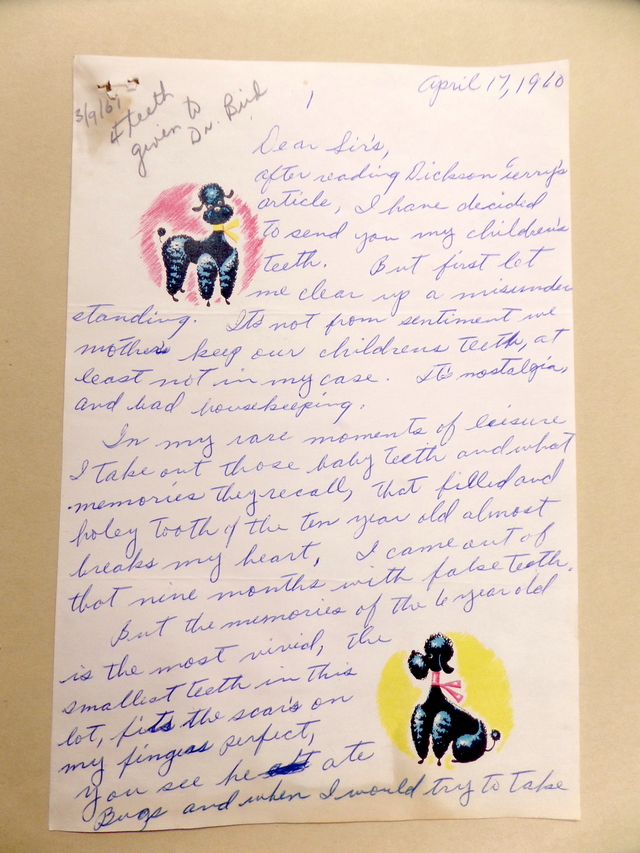 April 17, 1960
3/9/61
4 teeth
given to
Dr. Bird
1
Dear Sir's,
after reading Dickson Terry's
article, I have decided
to send you my children's
teeth. But first let
me clear up a misunder
standing. It's not from sentiment we
mothers keep our childrens teeth, at
least not in my case. It's nostalgia,
and bad housekeeping.
In my rare moments of leisure
I take out those baby teeth and what
memories they recall, that filled and
holey tooth of the ten year old almost
breaks my heart, I came out of
that nine months with false teeth.
But the memories of the 6 year old
is the most vivid, the
smallest teeth in this
lot, fits the scar's on
my fingers perfect,
you see he ate
Bugs and when I would try to take